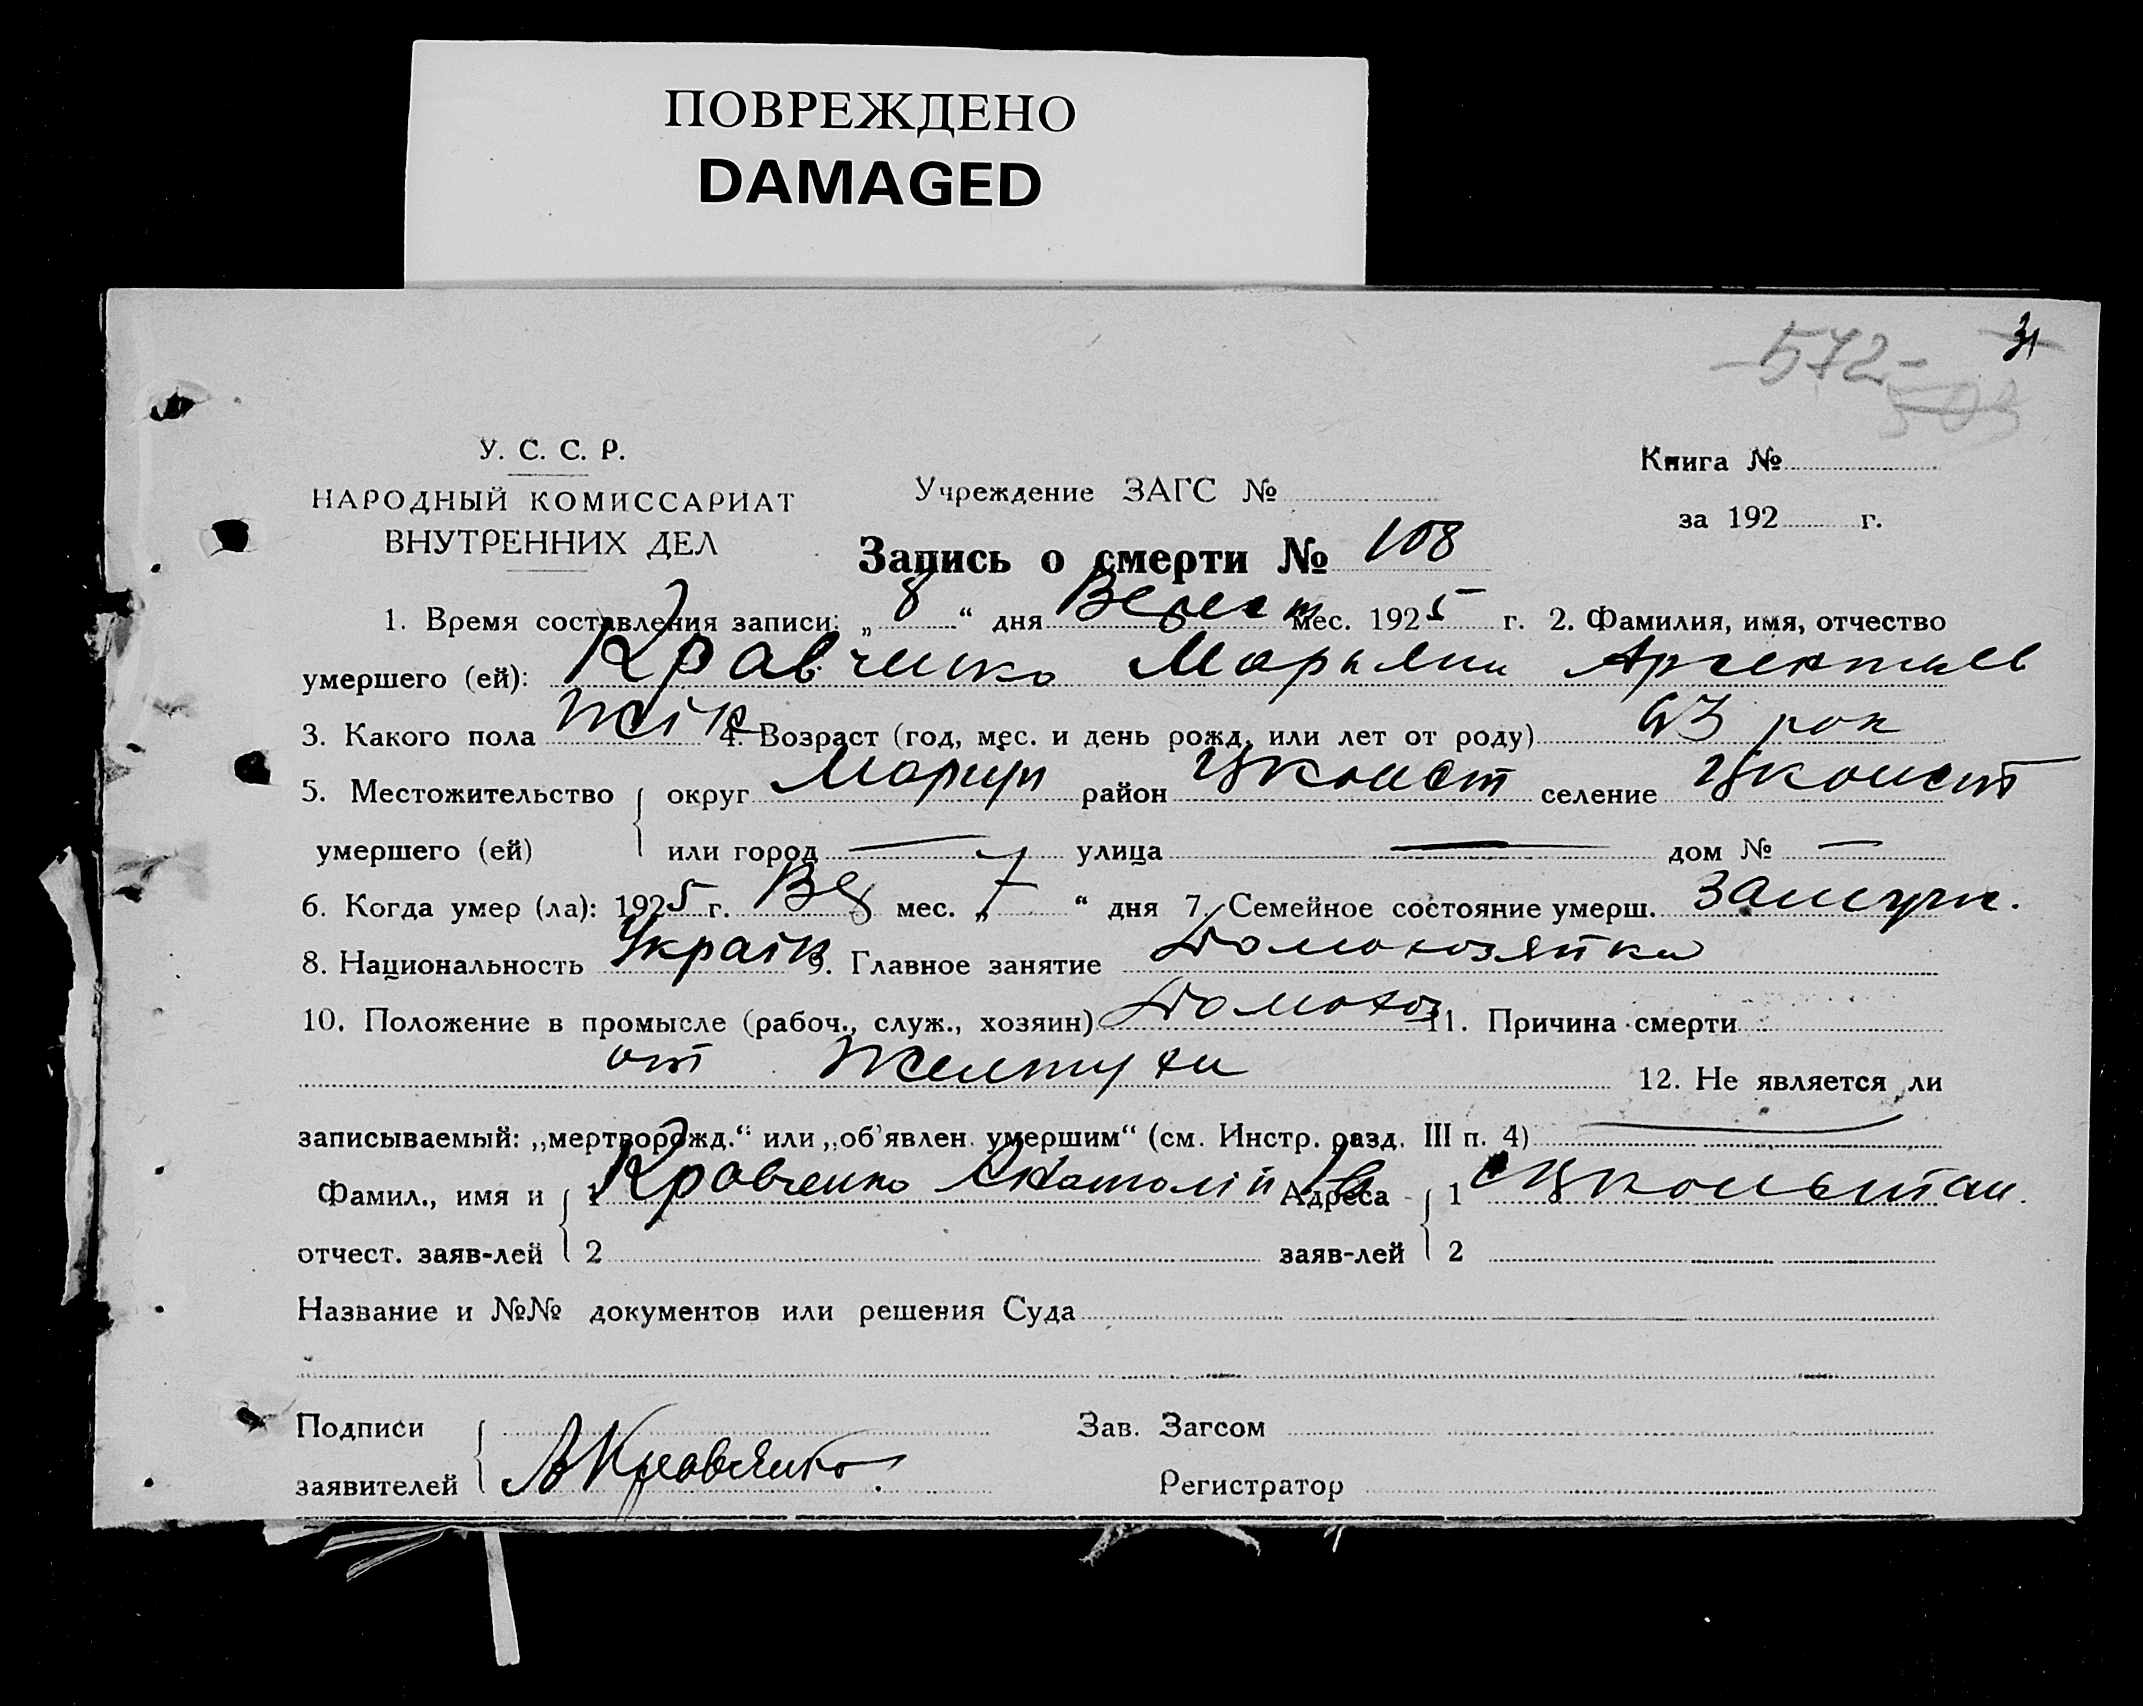 ПОВРЕЖДЕНО
DAMAGED
31
-572-
503
У. С. С. Р.
НАРОДНЫЙ КОМИССАРИАТ
ВНУТРЕННИХ ДЕЛ
Учреждение ЗАГС №
Книга №
за 192 г.
Запись о смерти № 108
1. Время составления записи: „ 8 “ дня мес. 1925 г. 2. Фамилия, имя, отчество
умершего (ей): Кравченко
3. Какого пола Жін 4. Возраст (год, мес. и день рожд. или лет от роду) 43 рок
5. Местожительство округ Мариуп район селение
умершего (ей) или город — улица — дом № —
6. Когда умер (ла): 1925 г. Вер мес. „ 7 “ дня 7. Семейное состояние умерш. Замужн.
8. Национальность Украін 9. Главное занятие Домохозяйка
10. Положение в промысле (рабоч., служ., хозяин) Домохоз 11. Причина смерти
от Желтухи 12. Не является ли
записываемый: „мертворожд.“ или „об’явлен. умершим“ (см. Инстр. разд. III п. 4) —
Фамил., имя и 1 Кравченко Анатолій Адреса 1
отчест. заяв-лей 2 заяв-лей 2
Название и №№ документов или решения Суда
Подписи Зав. Загсом
заявителей АКравченко Регистратор